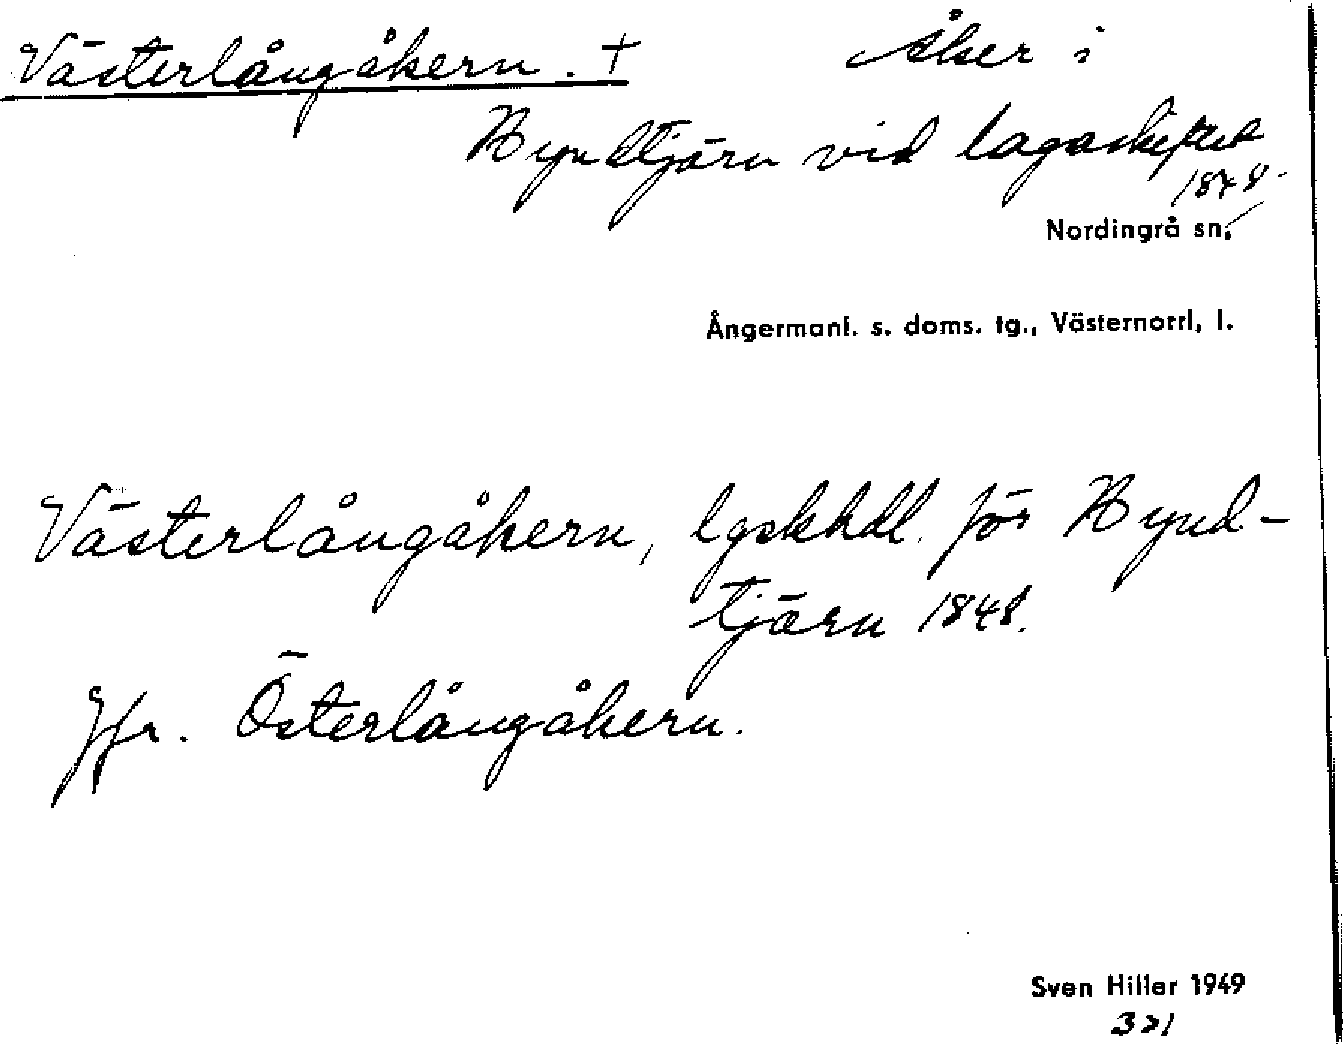 Västerlångåkern. + Åker i
Byndtjärn vid lagaskiftet
1848.
Nordingrå sn,
Ångermanl. s. doms. tg., Västernorrl, l.
Västerlångåkern, lgskhdl. för Bynd-
tjärn 1848.
Jfr. Österlångåkern.
Sven Hiller 1949
321